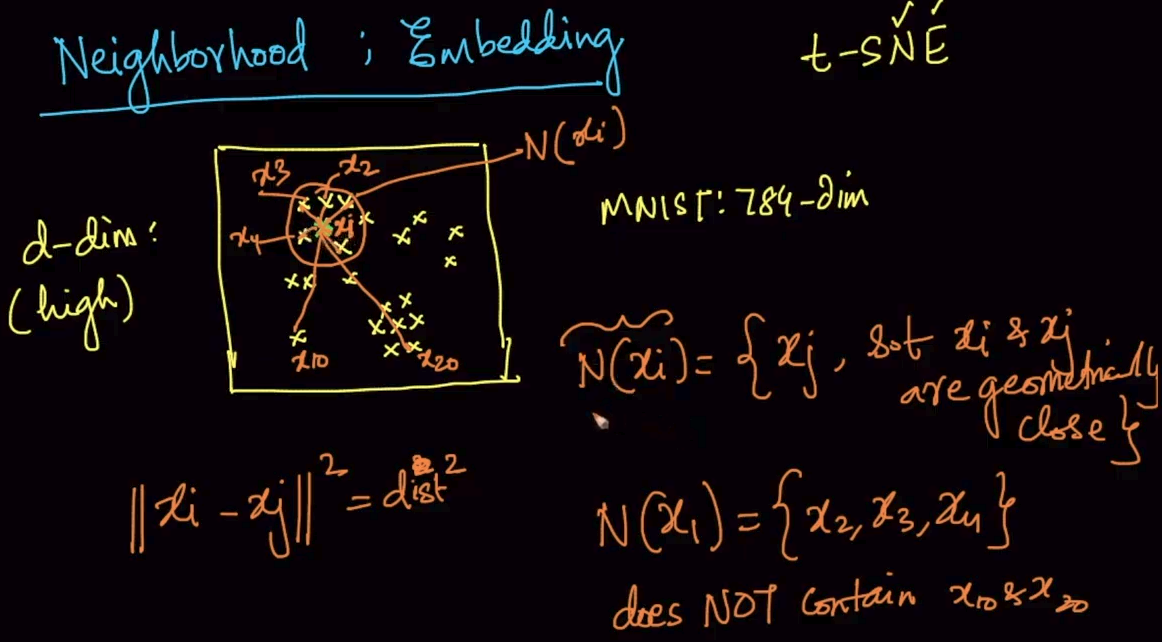 Neighborhood ; Embedding
t-SNE
N(xi)
x3 x2
x4 xi
d-dim:
(high)
x10 x20
MNIST: 784-dim
N(xi) = { xj, s.t xi & xj
are geometrically
close }
||xi - xj||² = dist²
N(x1) = { x2, x3, x4 }
does NOT contain x10 & x20